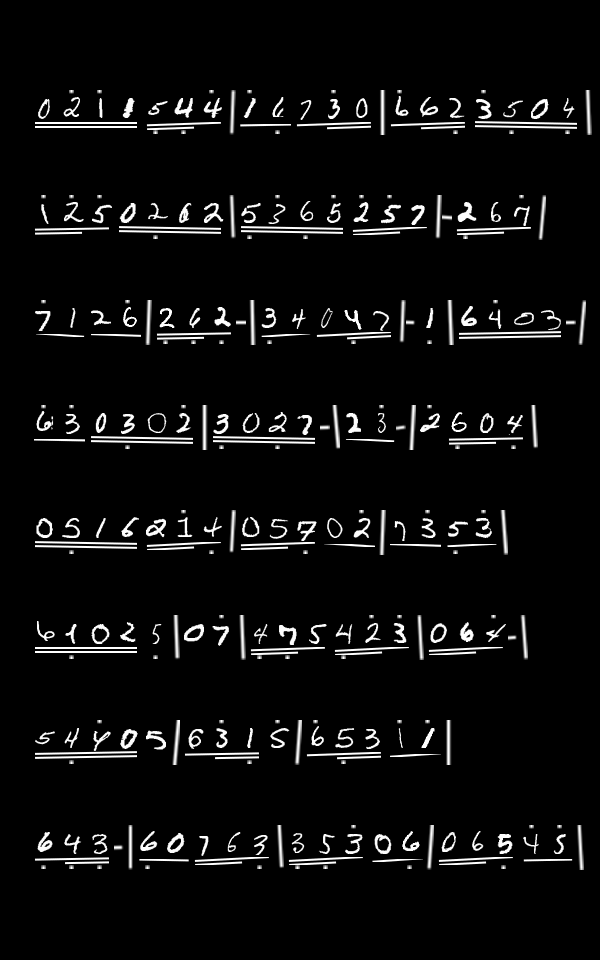 0 2 1 1 5 4 4 | 1 6 7 3 0 | 6 6 2 3 5 0 4 |
1 2 5 0 2 6 2 | 5 3 6 5 2 5 7 | - 2 6 7 |
7 1 2 6 | 2 6 2 - | 3 4 0 4 7 | - 1 | 6 4 0 3 - |
6 3 0 3 0 2 | 3 0 2 7 - | 2 3 - | 2 6 0 4 |
0 5 1 6 2 1 4 | 0 5 7 0 2 | 7 3 5 3 |
6 1 0 2 5 | 0 7 | 4 7 5 4 2 3 | 0 6 4 - |
5 4 4 0 5 | 6 3 1 5 | 6 5 3 1 1 |
6 4 3 - | 6 0 7 6 3 | 3 5 3 0 6 | 0 6 5 4 5 |